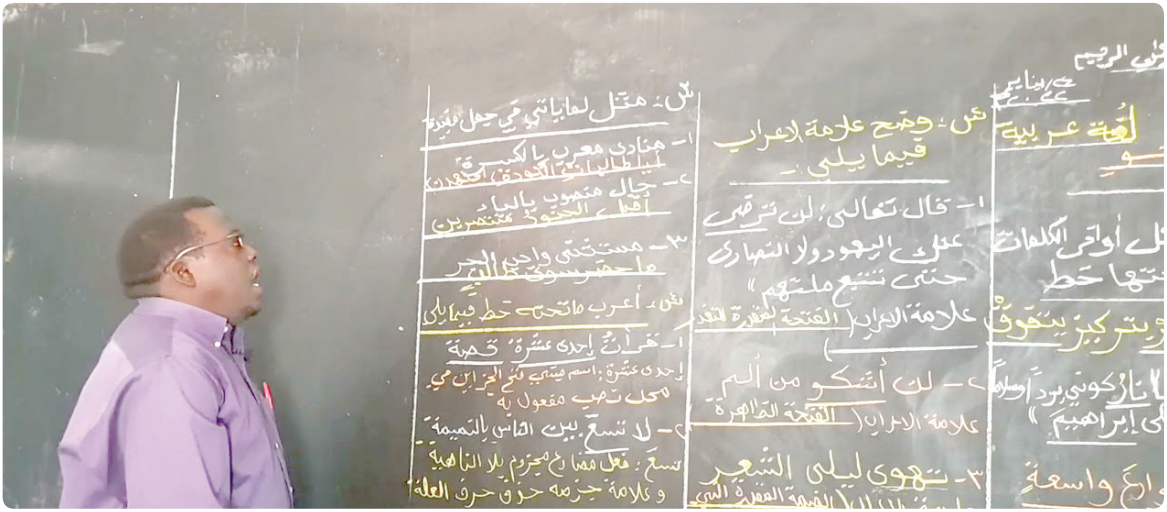 الرحيم
يناير
لغة عربية
أواخر الكلمات
تحتها خط
بتركيز يتفوق
نار كوني بردا وسلاما
إبراهيم »
واسعة
س: وضح علامة الاعراب
فيما يلي :-
١- قال تعالى: لن ترضى
عنك اليهود ولا النصارى
حتى تتبع ملتهم »
علامة الاعراب ( الفتحة المقدرة
٢- لن أشكو من ألم
علامة الاعراب ( الفتحة الظاهرة
٣- تهوى ليلى الشعر
س: مثل لما يأتي في جمل مفيدة
١- منادى معرب بالكسرة
٢- حال منصوب بالياء
أقبل الجنود منتصرين
٣- مستثنى واجب الجر
ما حضر سوى طالب
س: أعرب ما تحته خط فيما يلي
١- قرأت إحدى عشرة قصة
إحدى عشرة: اسم مبني فتح الجزأين في
محل نصب مفعول به
٢- لا تسع بين الناس بالنميمة
تسع: فعل مضارع مجزوم بلا الناهية
و علامة جزمه حذف حرف العلة